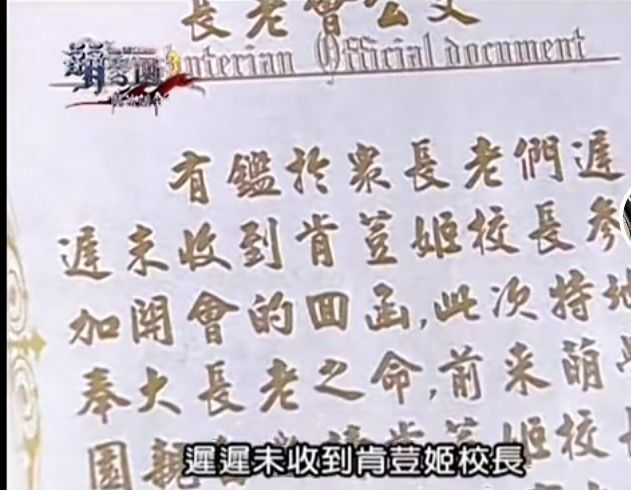 長老會公文
nterian Official document
有鑑於眾長老們遲
遲未收到肯荳姬校長參
加開會的回函,此次特地
奉大長老之命,前來萌學
園親
姬校長
遲遲未收到肯荳姬校長